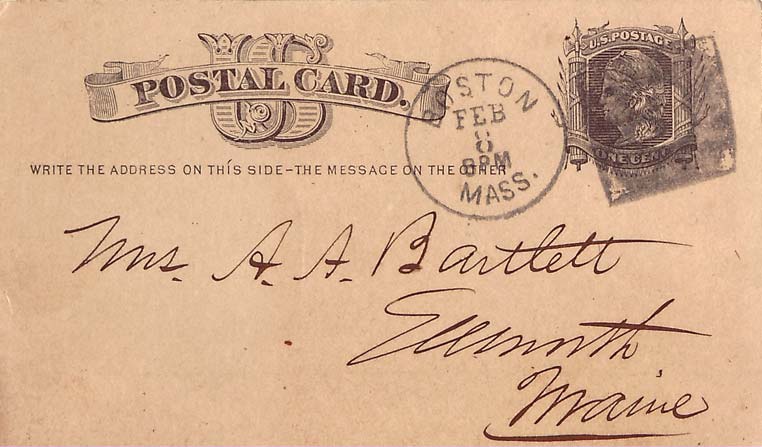 US
POSTAL CARD.
U.S. POSTAGE
ONE CENT
BOSTON
FEB
8
8PM
MASS.
WRITE THE ADDRESS ON THIS SIDE–THE MESSAGE ON THE OTHER
Mrs. A. A. Bartlett
Ellsworth
Maine